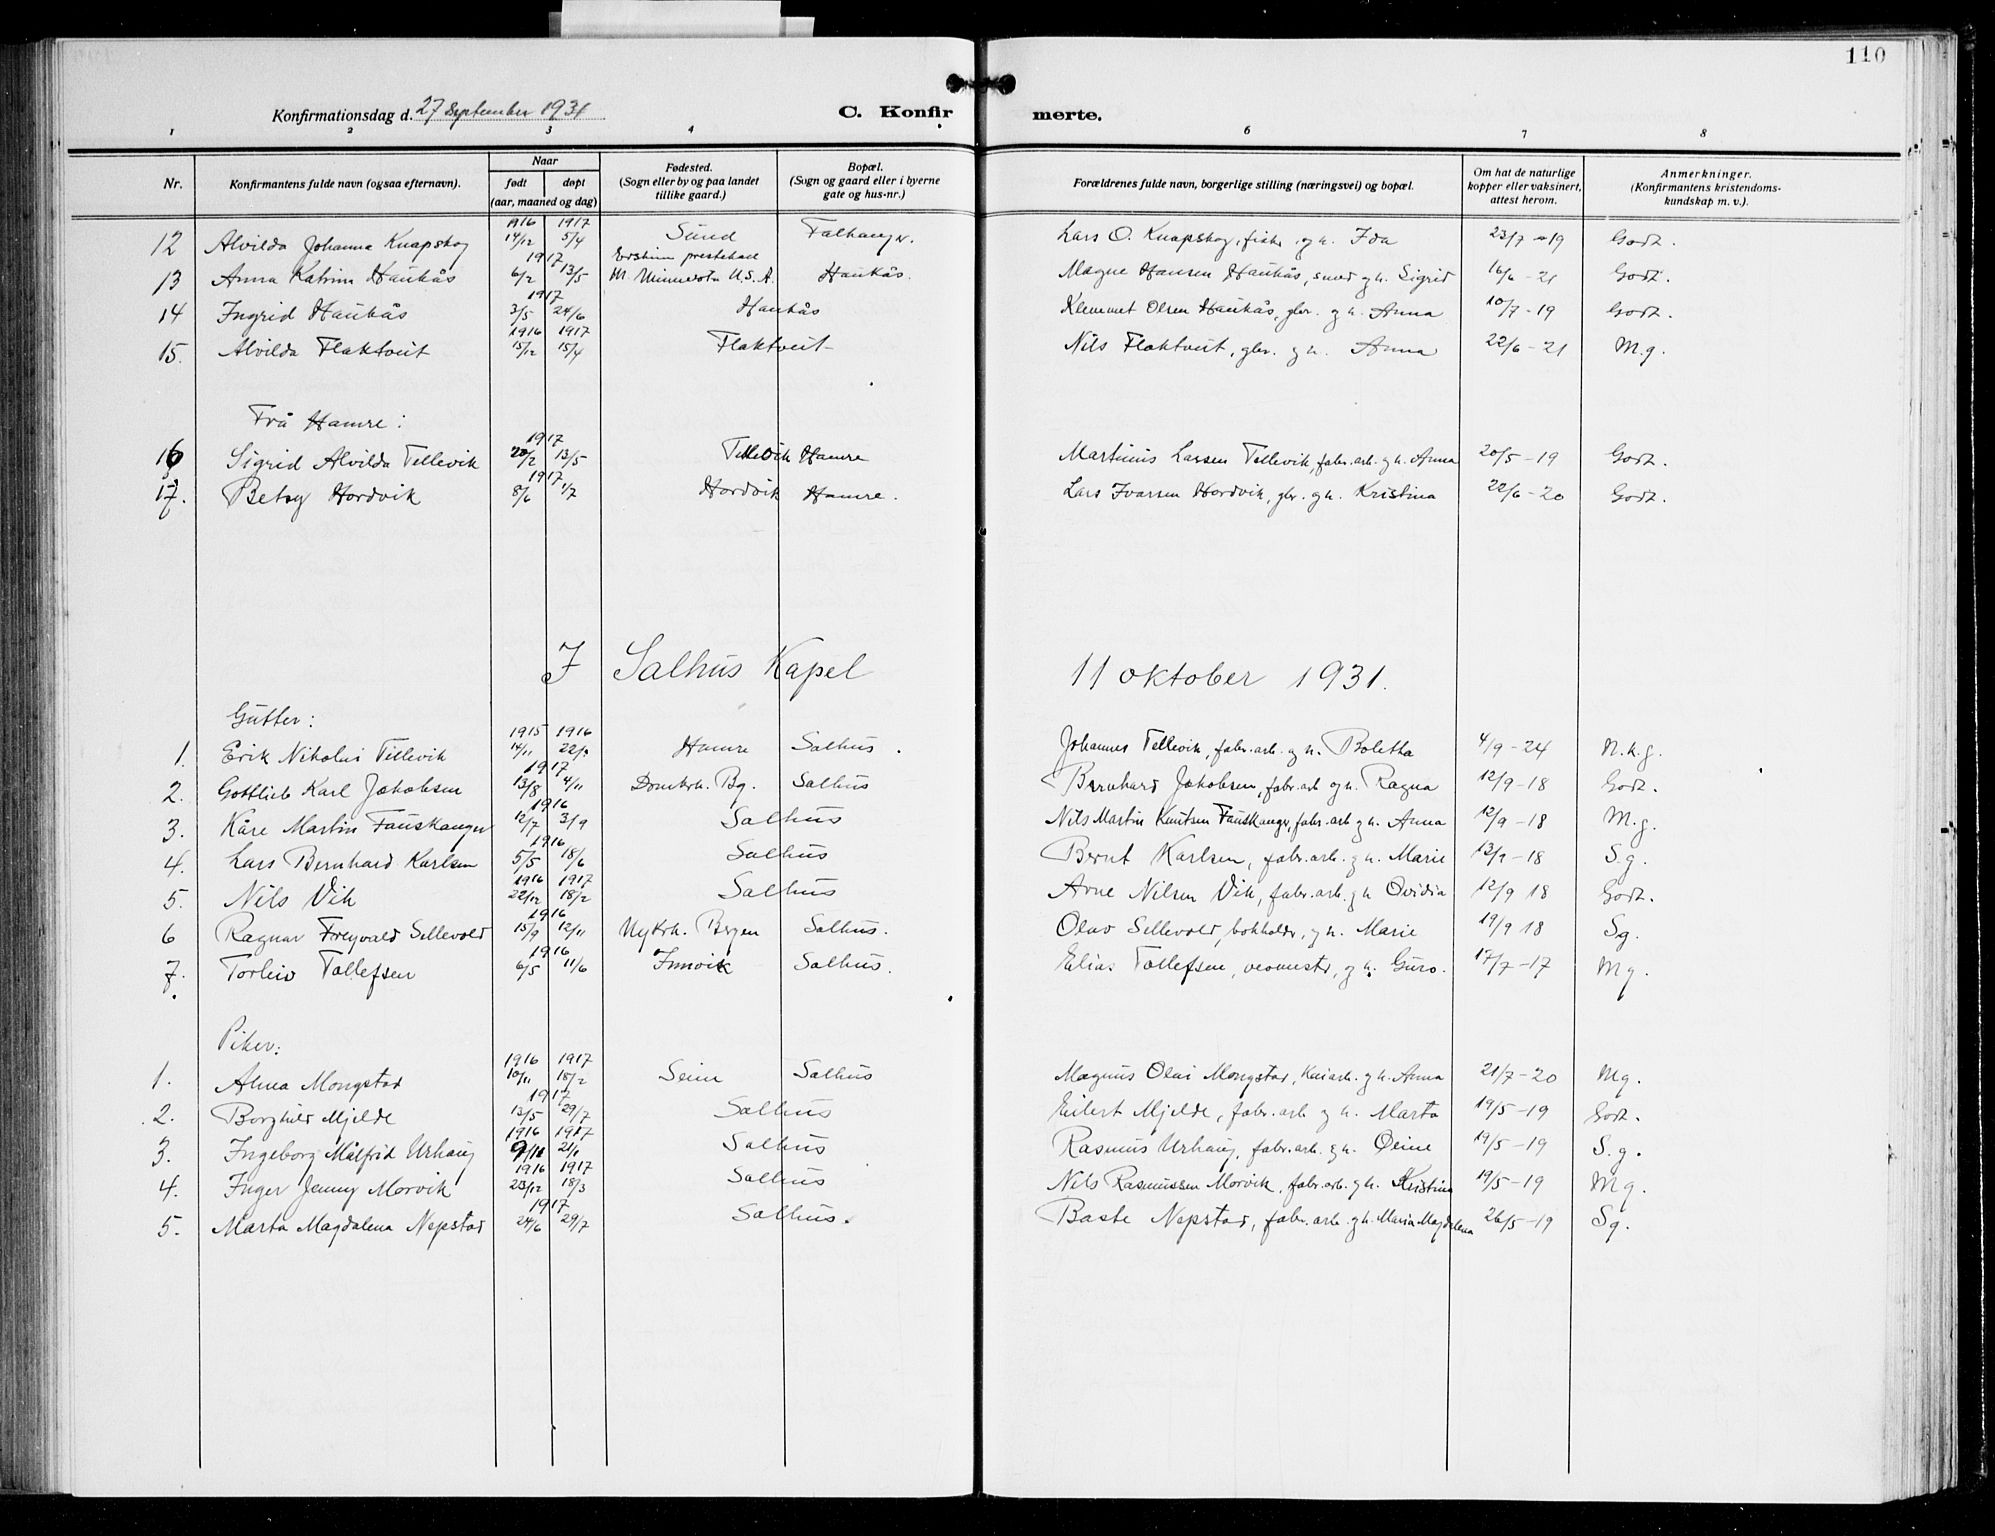 110
Konfirmationsdag d. 27 September 1931 C. Konfirmerte.
1 2 3 4 6 7 8
Nr. Konfirmantens fulde navn (ogsaa efternavn). Naar født døpt (aar, maaned og dag) Fødested. (Sogn eller by og paa landet tillike gaard.) Bopæl. (Sogn og gaard eller i byerne gate og hus-nr.) Forældrenes fulde navn, borgerlige stilling (næringsvei) og bopæl. Om hat de naturlige kopper eller vaksinert, attest herom. Anmerkninger. (Konfirmantens kristendomskundskap m. v.).
1916 1917
12 Alvilda Johanna Knapskog 14/12 5/4 Sund Lars O. Knapskog, fisker og h. Ida 23/7 - 19 Godt.
1917
13 Anna Katrine Haukås 6/2 13/5 M. Minnesota U.S.A. Haukås. Magne Hansen Haukås, smed g h. Sigrid 16/6 - 21 Godt.
1917
14 Ingrid Haukås 3/5 24/6 Haukås Klemmet Olsen Haukås, gbr. g h. Anna 10/7 - 19 Godt.
1916 1917
15. Alvilda Flaktveit 15/12 15/4 Flaktveit Nils Flaktveit, gbr. g h. Anna 22/6 - 21 M.g.
Frå Hamre:
1917
16 Sigrid Alvilda Tellevik 20/2 13/5 Tellevik Hamre Martinus Larsen Tellevik, fabr.arb. g h. Anna 20/5 - 19 Godt.
1917
17. Betsy Hordvik 8/6 1/7 Hordvik Hamre. Lars Ivarsen Hordvik, gbr. g h. Kristina 22/6 - 20 Godt.
I Salhus Kapel 11 oktober 1931.
Gutter:
1915 1916
1. Erik Nikolai Tellevik 14/11 Hamre Salhus. Johannes Tellevik, fabr.arb. g h. Boletha 4/9 - 24 N.k.g.
1917
2. Gottlieb Karl Jakobsen 13/8 4/11 Domkrk. Bg. Salhus Bernhard Jakobsen, fabr.arb og h. Ragna 12/9 - 18 Godt.
1916
3. Kåre Martin Fauskanger 12/7 3/9 Salhus Nils Martin Knutsen Fauskanger, fabr.arb g h. Anna 12/9 - 18 M.g.
1916
4. Lars Bernhard Karlsen 5/5 18/6 Salhus Bernt Karlsen, fabr.arb. g h. Marie - 18 S.g.
1916 1917
5. Nils Vik 22/12 18/2 Salhus Arne Nilsen Vik, fabr.arb. g h Ovidia 12/9 18 Godt.
1916
6 Ragnar Freyvald Sellevold 15/9 12/11 Nykrk. Bergen Salhus. Olav Sellevold, bokholdr, g h. Marie 19/9 18 Sg.
1916
7. Torleiv Tollefsen 6/5 11/6 Innvik Salhus. Elias Tollefsen, vevmestr, g h. Guro. 17/7 - 17 Mg.
Piker:
1916 1917
1. Alma Mongstad 10/11 18/2 Seim Salhus Magnus Olai Mongstad, g h. Anna 21/7 - 20 Mg.
1917
2. Borghild Mjelde 13/5 29/7 Salhus Eilert Mjelde, fabr.arb g h. Marta 19/5 - 19 Godt.
1916 1917
3. Ingeborg Målfrid Urhaug 21/1 Salhus Rasmus Urhaug, fabr.arb. g h. Oline 19/5 - 19 S.g.
1916 1917
4. Inger Jenny Morvik 23/12 18/3 Salhus Nils Rasmussen Morvik, fabr.arb. g h. Kristina 19/5 - 19 Mg.
1917
5. Marta Magdalena Nepstad 24/6 29/7 Salhus. Baste Nepstad, fabr.arb. g h. Maria Magdalena 26/5 - 19 Sg.